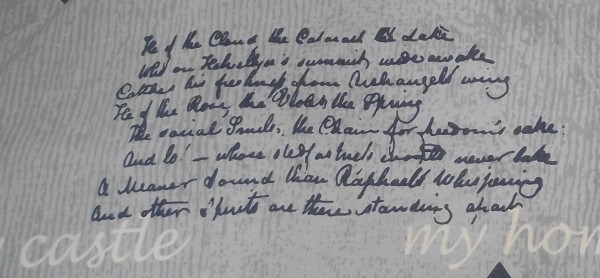 He of the Cloud the Cataract the Lake
Who on Helvellyn's summit wide awake
Catches his freshness from Archangel's wing
He of the Rose, the Violet, the Spring
The social Smile, the Chain for freedom's sake:
And lo! – whose stedfastness would never take
A Meaner Sound than Raphael's Whispering
And other Spirits are there standing apart
castle
my hom